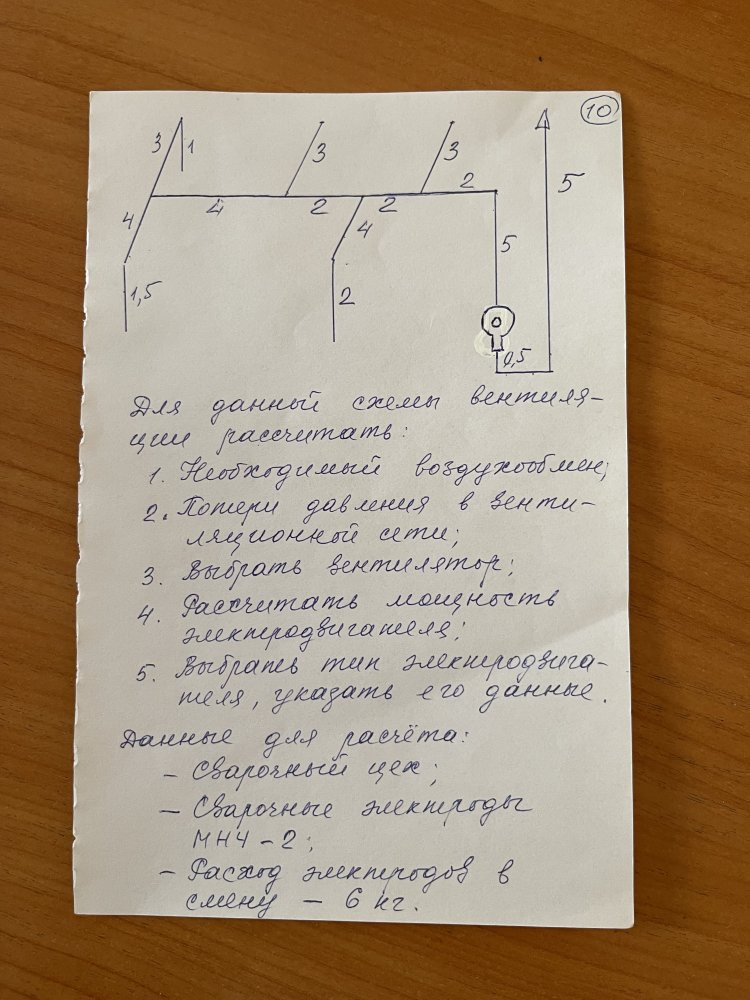 10
3
1
3
3
2
5
4
4
2
2
4
5
1,5
2
0,5
Для данный схемы вентиля-
ции рассчитать:
1. Необходимый воздухообмен;
2. Потери давления в венти-
ляционной сети;
3. Выбрать вентилятор;
4. Рассчитать мощность
электродвигателя;
5. Выбрать тип электродвига-
теля, указать его данные.
Данные для расчёта:
- Сварочный цех;
- Сварочные электроды
МНЧ-2;
- Расход электродов в
смену - 6 кг.